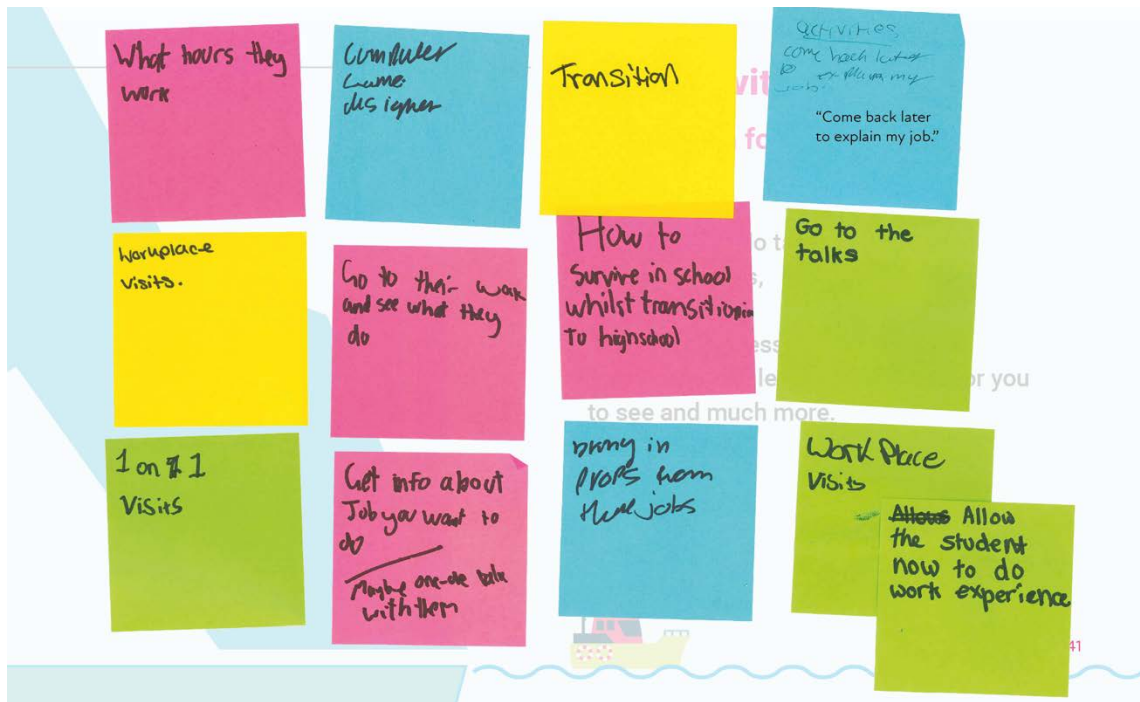 What hours they
work
Computer
Game
designer
Transition
activities,
come back later
to explain my
job.
"Come back later
to explain my job."
Workplace
visits.
Go to their work
and see what they
do
How to
Survive in school
whilst transitionin
To highschool
Go to the
talks
1 on 1
Visits
Get info about
Job you want to
do
Maybe one-one talk
with them
bring in
props from
there jobs
Work Place
Visits
Allow
the student
now to do
work experience
or you
to see and much more.
41